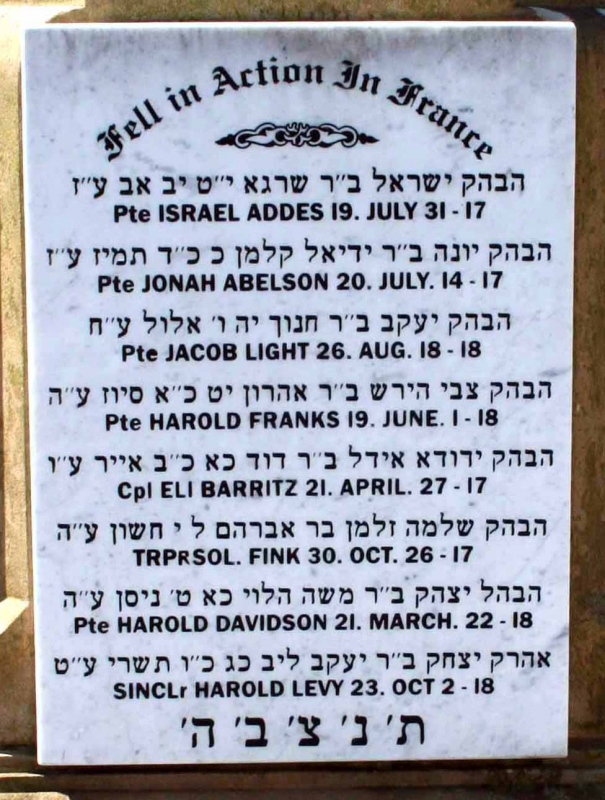 Fell in Action In France
הבהק ישראל ב״ר שרגא י״ט יב אב ע״ז
Pte ISRAEL ADDES 19. JULY 31 - 17
הבהק יונה ב״ר ידיאל קלמן כ כ״ד תמיז ע״ז
Pte JONAH ABELSON 20. JULY. 14 - 17
הבהק יעקב ב״ר חנוך יה ו׳ אלול ע״ח
Pte JACOB LIGHT 26. AUG. 18 - 18
הבהק צבי הירש ב״ר אהרון יט כ״א סיוז ע״ה
Pte HAROLD FRANKS 19. JUNE. 1 - 18
הבהק ידודא אידל ב״ר דוד כא כ״ב אייר ע״ו
Cpl ELI BARRITZ 21. APRIL. 27 - 17
הבהק שלמה זלמן בר אברהם ל י חשון ע״ה
TRPRSOL. FINK 30. OCT. 26 - 17
הבהל יצהק ב״ר משה הלוי כא ט׳ ניסן ע״ה
Pte HAROLD DAVIDSON 21. MARCH. 22 - 18
אהרק יצחק ב״ר יעקב ליב כג כ״ו תשרי ע״ט
SINCLr HAROLD LEVY 23. OCT 2 - 18
ת׳ נ׳ צ׳ ב׳ ה׳